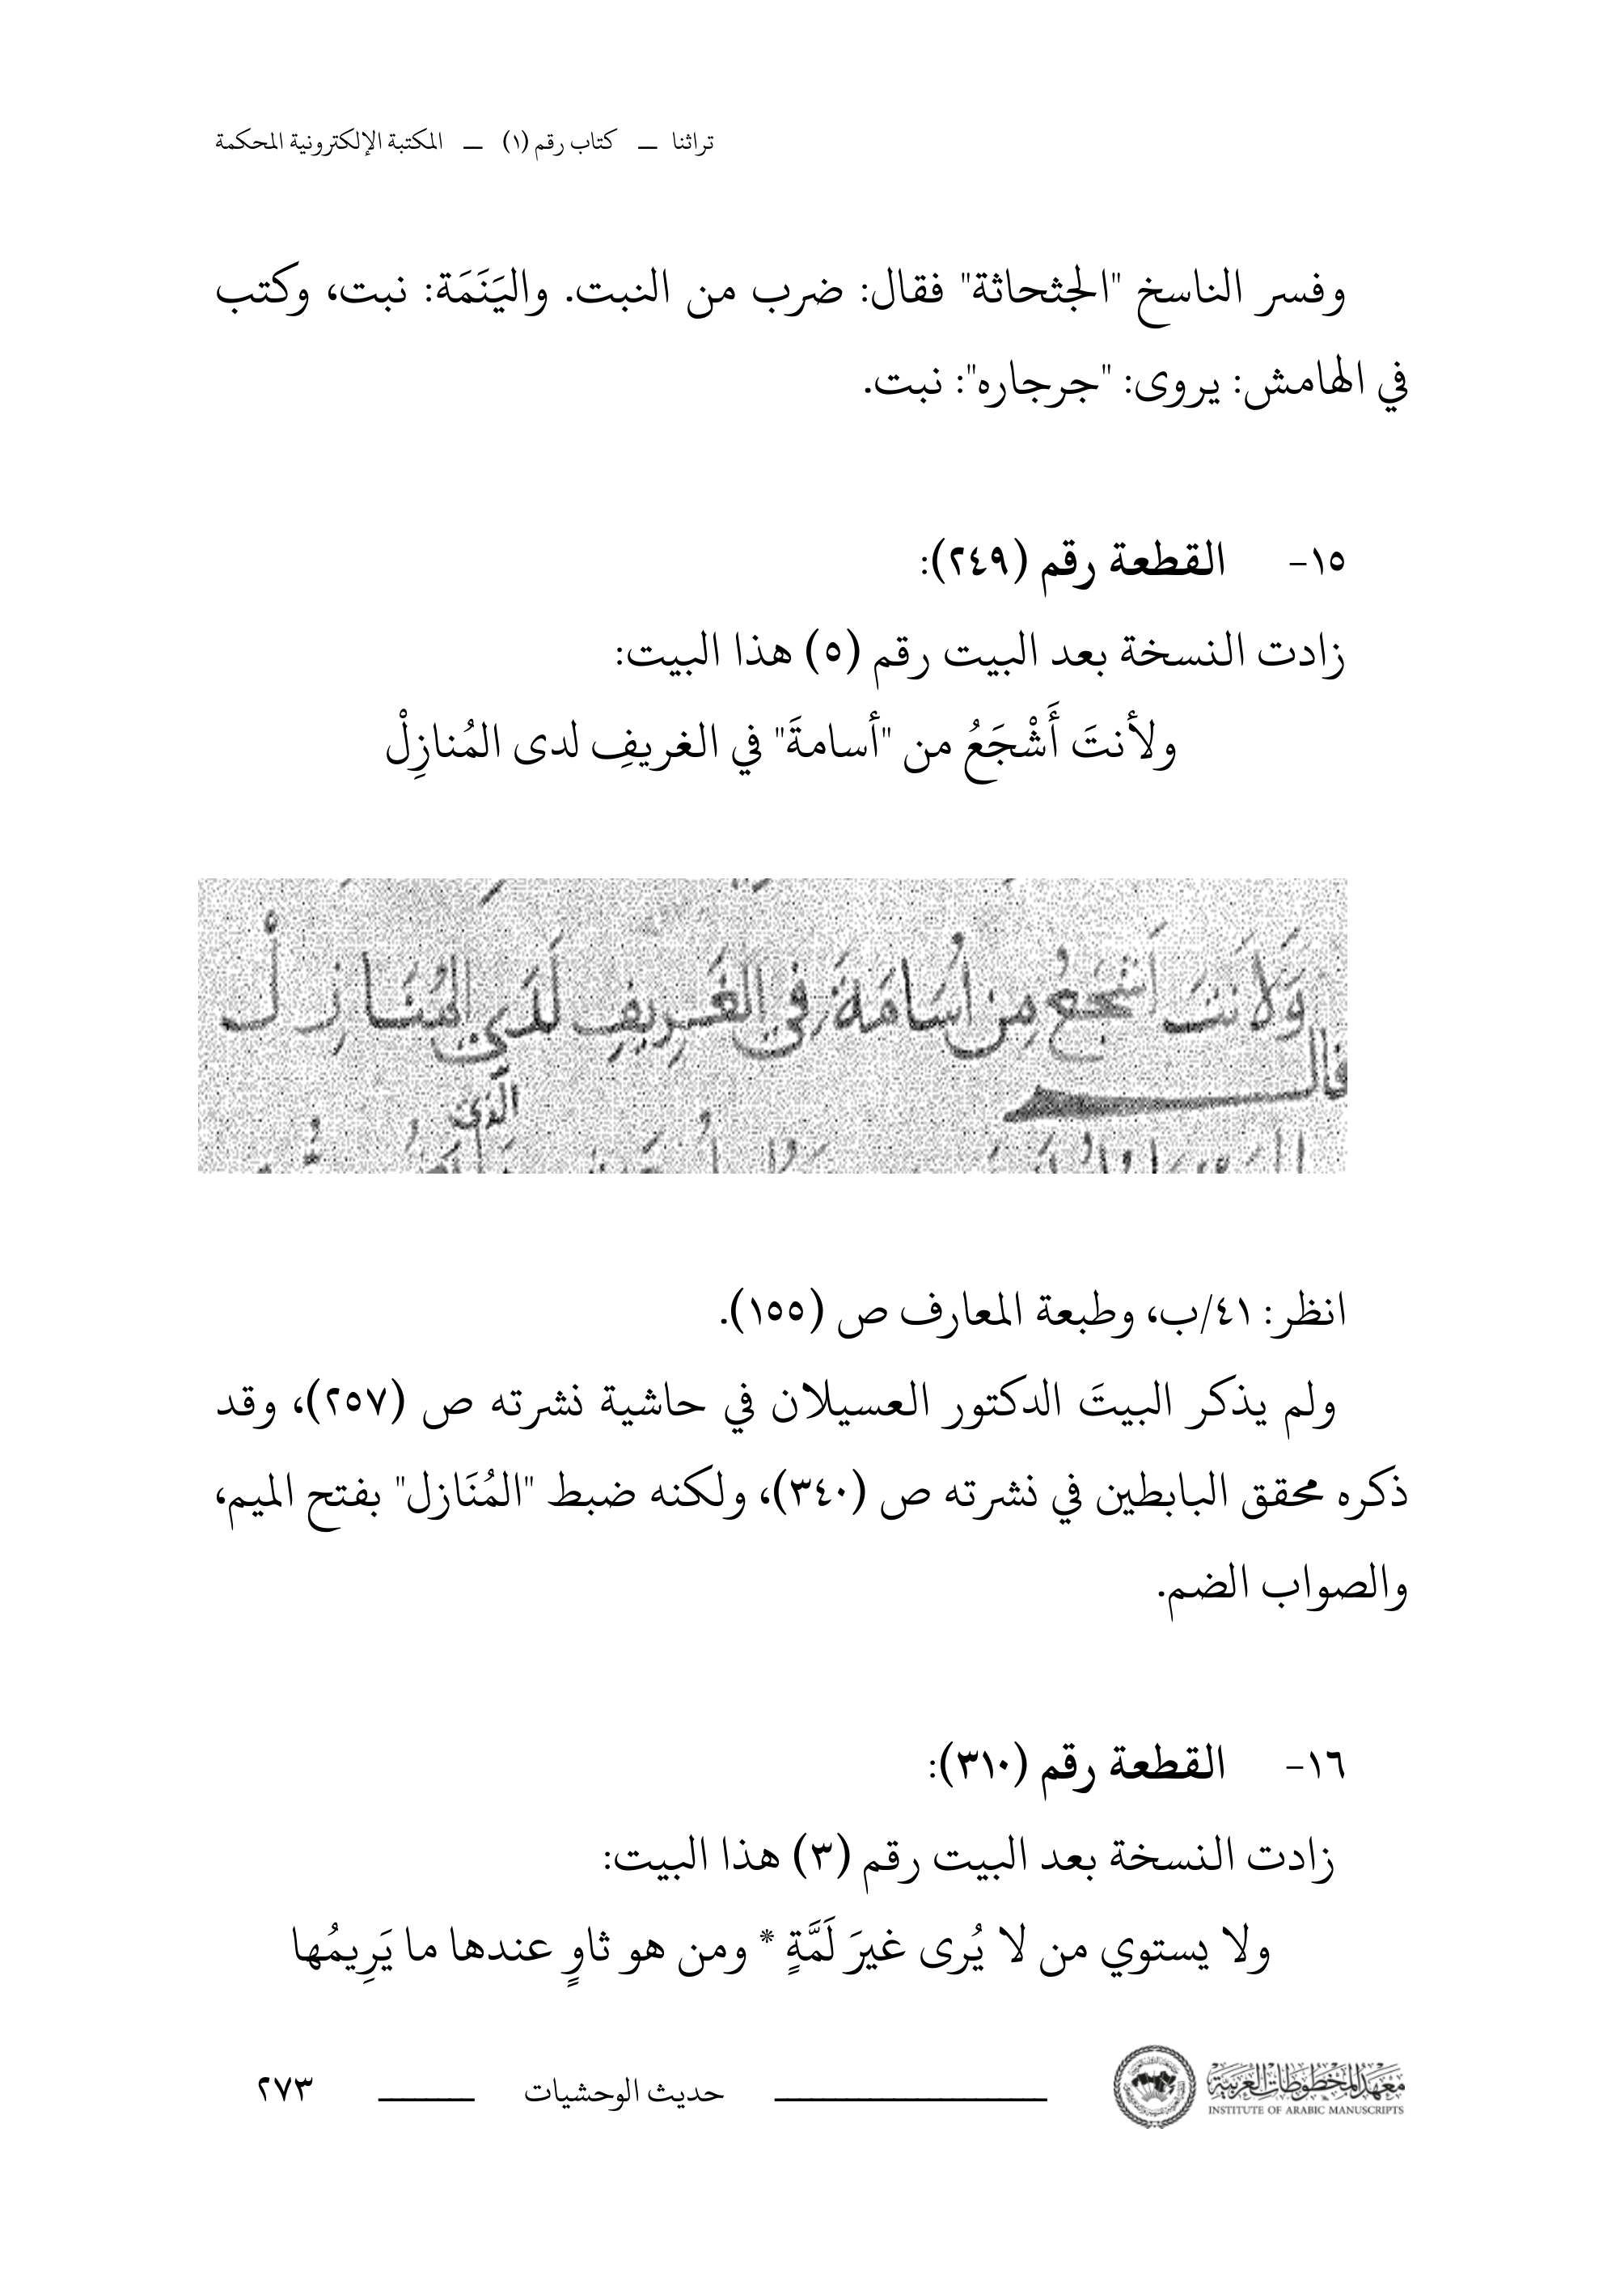 تراثنا — كتاب رقم (١) — المكتبة الإلكترونية المحكمة
وفسر الناسخ "الجثحاثة" فقال: ضرب من النبت. واليَنَمَة: نبت، وكتب
في الهامش: يروى: "جرجاره": نبت.
١٥- القطعة رقم (٢٤٩):
زادت النسخة بعد البيت رقم (٥) هذا البيت:
ولأنتَ أَشْجَعُ من "أسامةَ" في الغريفِ لدى المُنازِلْ
وَلَأَنتَ أَشْجَعُ مِن أُسَامَةَ فِي الغَرِيفِ لَدَى المُنَازِلْ
قال
الذي
انظر: ٤١/ب، وطبعة المعارف ص (١٥٥).
ولم يذكر البيتَ الدكتور العسيلان في حاشية نشرته ص (٢٥٧)، وقد
ذكره محقق البابطين في نشرته ص (٣٤٠)، ولكنه ضبط "المُنَازل" بفتح الميم،
والصواب الضم.
١٦- القطعة رقم (٣١٠):
زادت النسخة بعد البيت رقم (٣) هذا البيت:
ولا يستوي من لا يُرى غيرَ لَمَّةٍ * ومن هو ثاوٍ عندها ما يَرِيمُها
معهد المخطوطات العربية
INSTITUTE OF ARABIC MANUSCRIPTS
حديث الوحشيات
٢٧٣